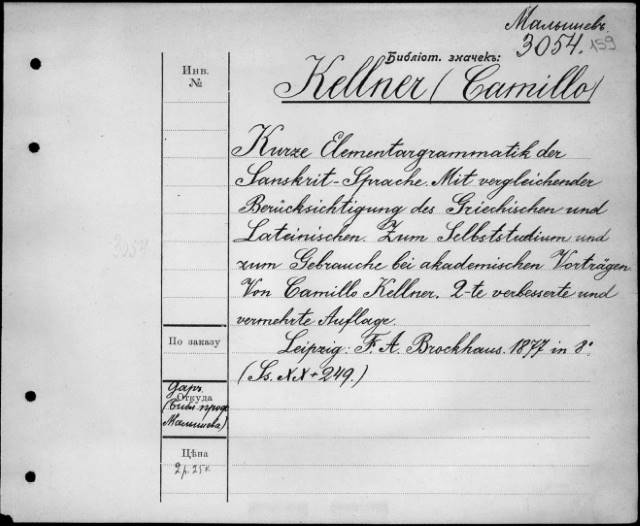 Малышевъ
3054. 159
Библіот. значекъ:
Инв.
№
Kellner (Camillo)
Kurze Elementargrammatik der
Sanskrit-Sprache. Mit vergleichender
Berücksichtigung des Griechischen und
Lateinischen. Zum Selbststudium und
zum Gebrauche bei akademischen Vorträgen
Von Camillo Kellner. 2-te verbesserte und
vermehrte Auflage.
Leipzig: F. A. Brockhaus. 1877 in 8°
(Ss. XX+249.)
3054
По заказу
Даръ
Откуда
(Библ. проф.
Малышева)
Цѣна
2 р. 25 к.